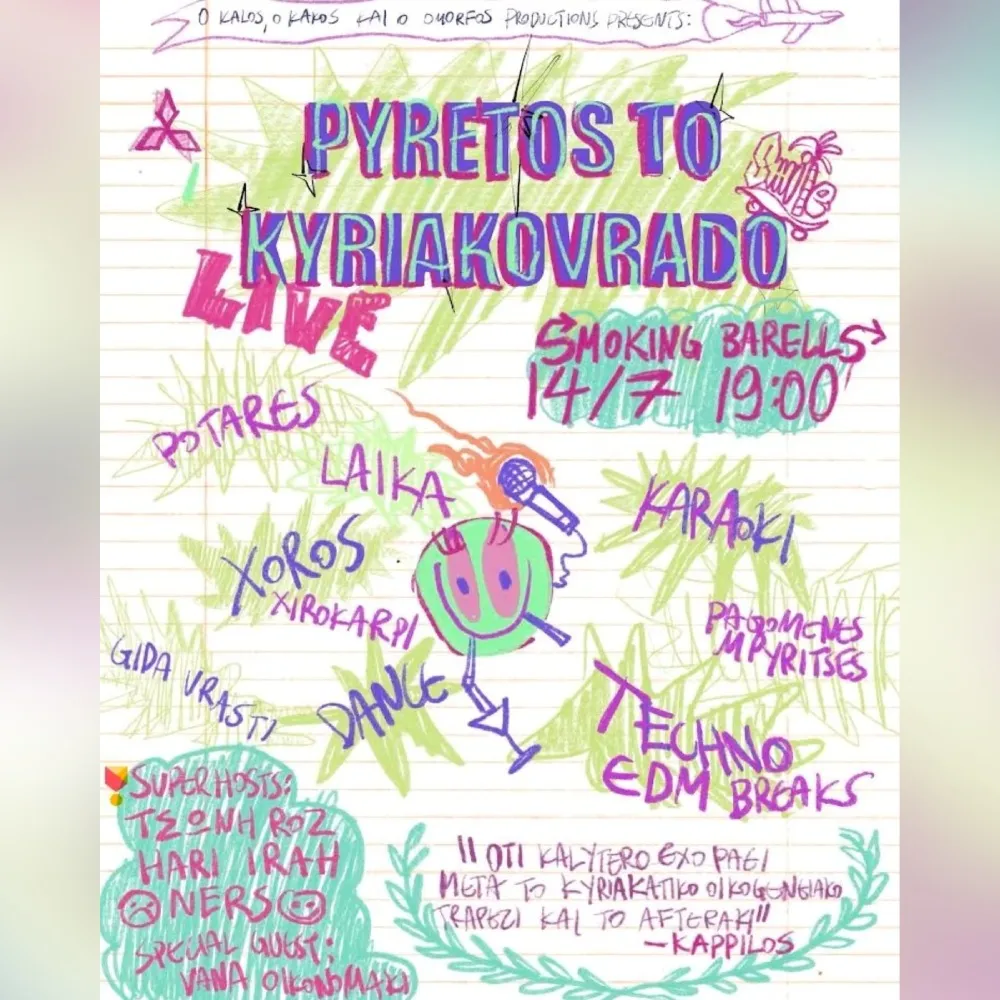 O KALOS, O KAKOS KAI O OMORFOS PRODUCTIONS PRESENTS:
PYRETOS TO
KYRIAKOVRADO
LIVE
SMOKING BARELLS
14/7 19:00
POTARES
LAIKA
KARAOKI
XOROS
XIROKARPI
PAGOMENES
MPYRITSES
GIDA VRASTI
DANCE
TECHNO
EDM BREAKS
SUPERHOSTS:
ΤΖΩΝΗ ROZ
HARI IRAH
NERSO
SPECIAL GUEST:
VANA OIKONOMAKI
"OTI KALYTERO EXO PAEI
META TO KYRIAKATIKO OIKOGENEIAKO
TRAPEZI KAI TO AFTERAKI"
-KAPPILOS